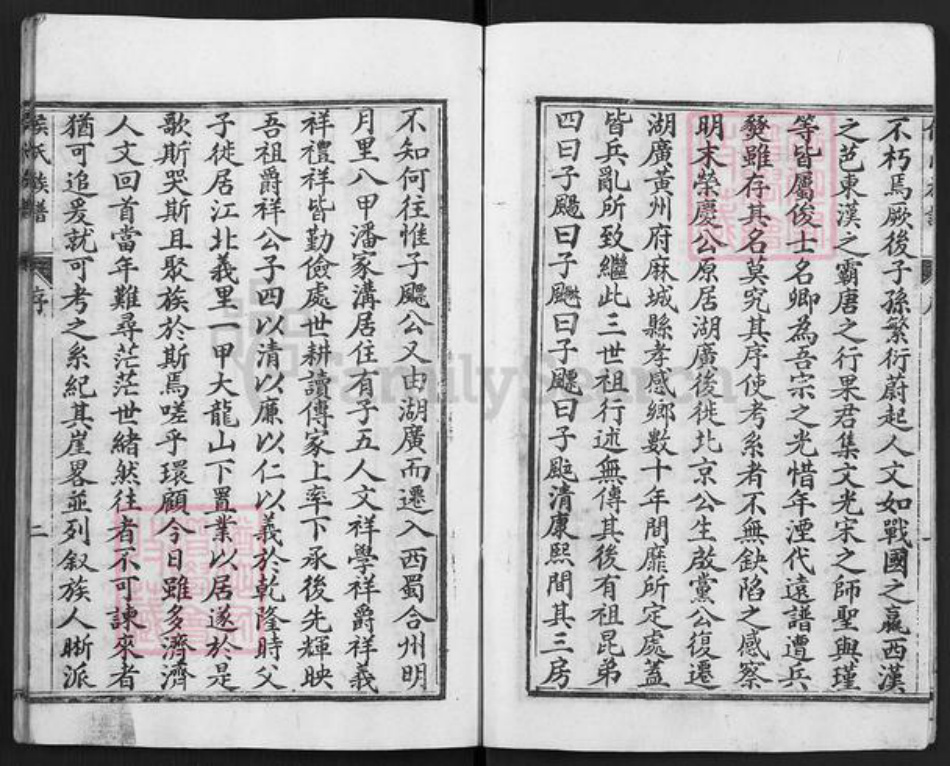 不朽焉厥後子孫繁衍蔚起人文如戰國之嬴西漢
之芭東漢之霸唐之行果君集文光宋之師聖與瑾
等皆屬俊士名卿為吾宗之光惜年湮代遠譜遭兵
燹雖存其名莫究其序使考系者不無缺陷之感察
明末榮慶公原居湖廣後徙北京公生啟黨公復遷
湖廣黃州府麻城縣孝感鄉數十年間靡所定處蓋
皆兵亂所致繼此三世祖行述無傳其後有祖昆弟
四曰子颺曰子颰曰子飃曰子颭清康熙間其三房
不知何往惟子飃公又由湖廣而遷入西蜀合州明
月里八甲潘家溝居住有子五人文祥學祥爵祥義
祥禮祥皆勤儉處世耕讀傳家上率下承後先輝映
吾祖爵祥公子四以清以廉以仁以義於乾隆時父
子徙居江北義里一甲大龍山下置業以居遂於是
歌斯哭斯且聚族於斯焉嗟乎環顧今日雖多濟濟
人文回首當年難尋茫茫世緒然往者不可諫來者
猶可追爰就可考之系紀其崖畧並列叙族人晰派
侯氏族譜 序 二
FamilySearch